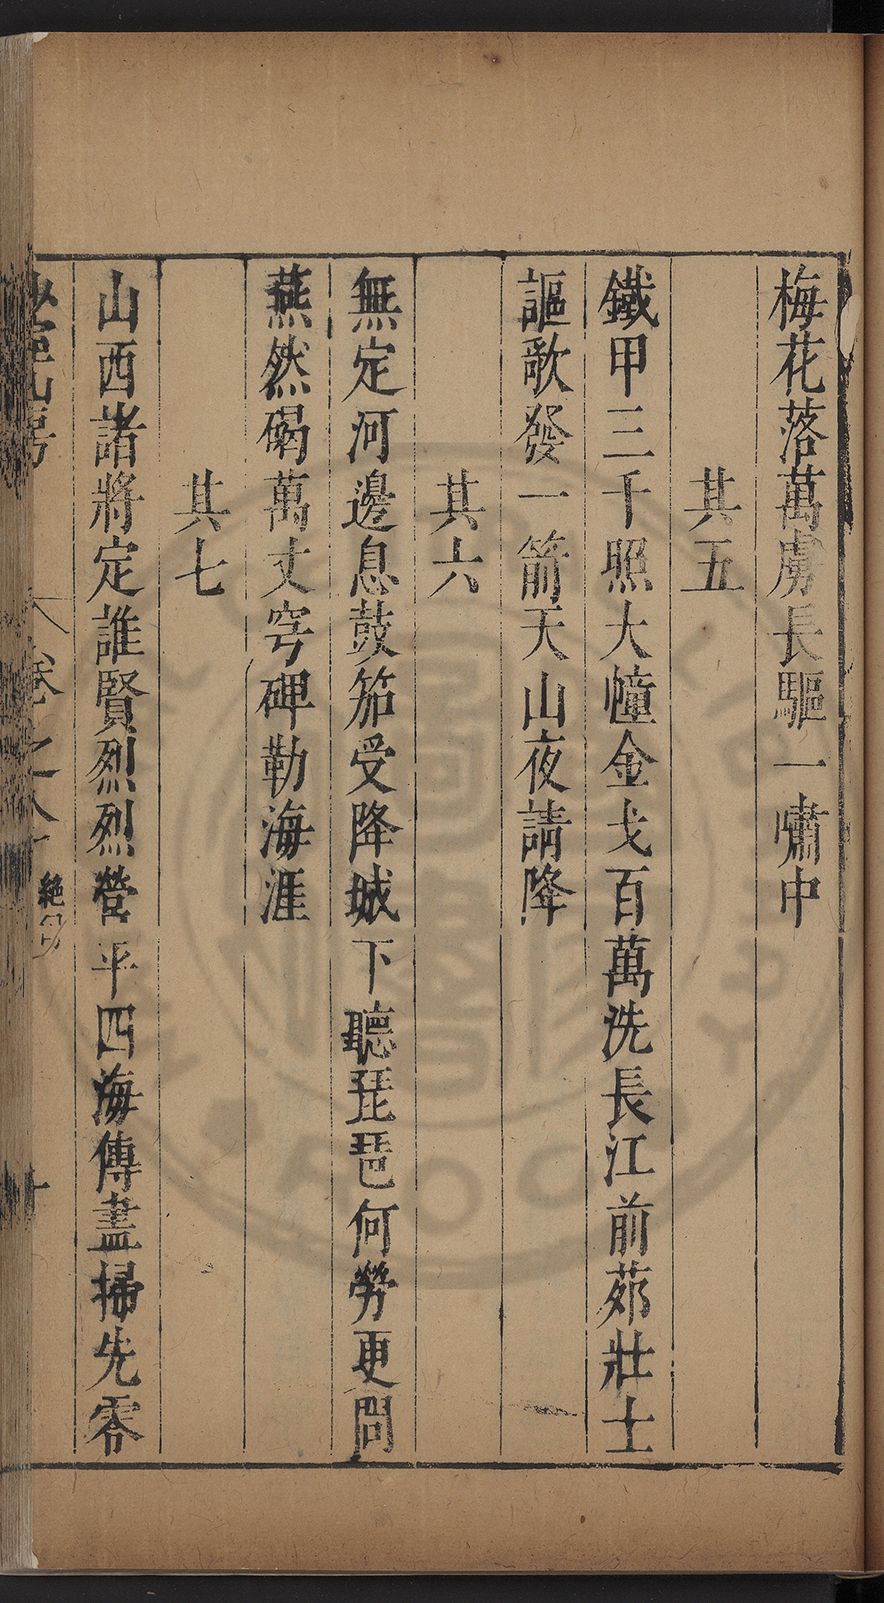 梅花落萬虜長驅一嘯中
其五
鐵甲三千照大幢金戈百萬洗長江前茆壯士
謳歌發一箭天山夜請降
其六
無定河邊息鼓笳受降城下聽琵琶何勞更問
燕然碣萬丈穹碑勒海涯
其七
山西諸將定誰賢烈烈營平四海傳盡掃先零
卷之八 絶句 十